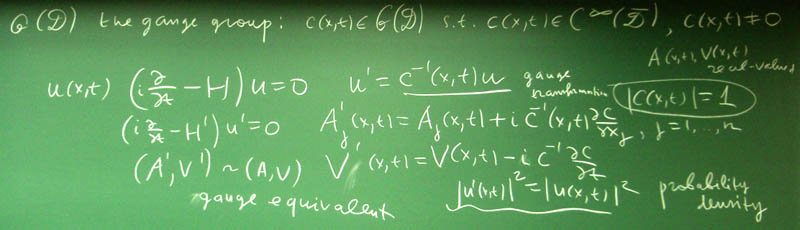 G(D) the gauge group: c(x,t) ∈ G(D) s.t. c(x,t) ∈ C^∞(D̄), c(x,t) ≠ 0
A(x,t), V(x,t) real-valued
u(x,t) (i ∂/∂t − H) u = 0 u' = c⁻¹(x,t) u gauge transformation |c(x,t)| = 1
(i ∂/∂t − H') u' = 0 A'_j(x,t) = A_j(x,t) + i c⁻¹(x,t) ∂c/∂x_j, j = 1, ..., n
(A', V') ~ (A, V) V'(x,t) = V(x,t) − i c⁻¹ ∂c/∂t
gauge equivalent |u'(x,t)|² = |u(x,t)|² probability density